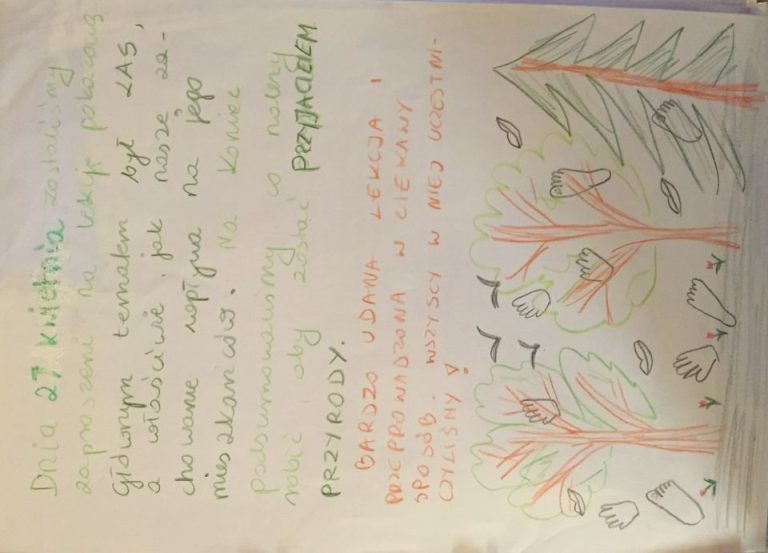 Dnia 27 kwietnia zostaliśmy
zaproszeni na lekcję pokazową.
Głównym tematem był LAS,
a właściwie jak nasze za-
chowanie wpływa na jego
mieszkańców. Na koniec
podsumowaliśmy co należy
robić, aby zostać PRZYJACIELEM
PRZYRODY.
BARDZO UDANA LEKCJA I
PRZEPROWADZONA W CIEKAWY
SPOSÓB. WSZYSCY W NIEJ UCZESTNI-
CZYLIŚMY!